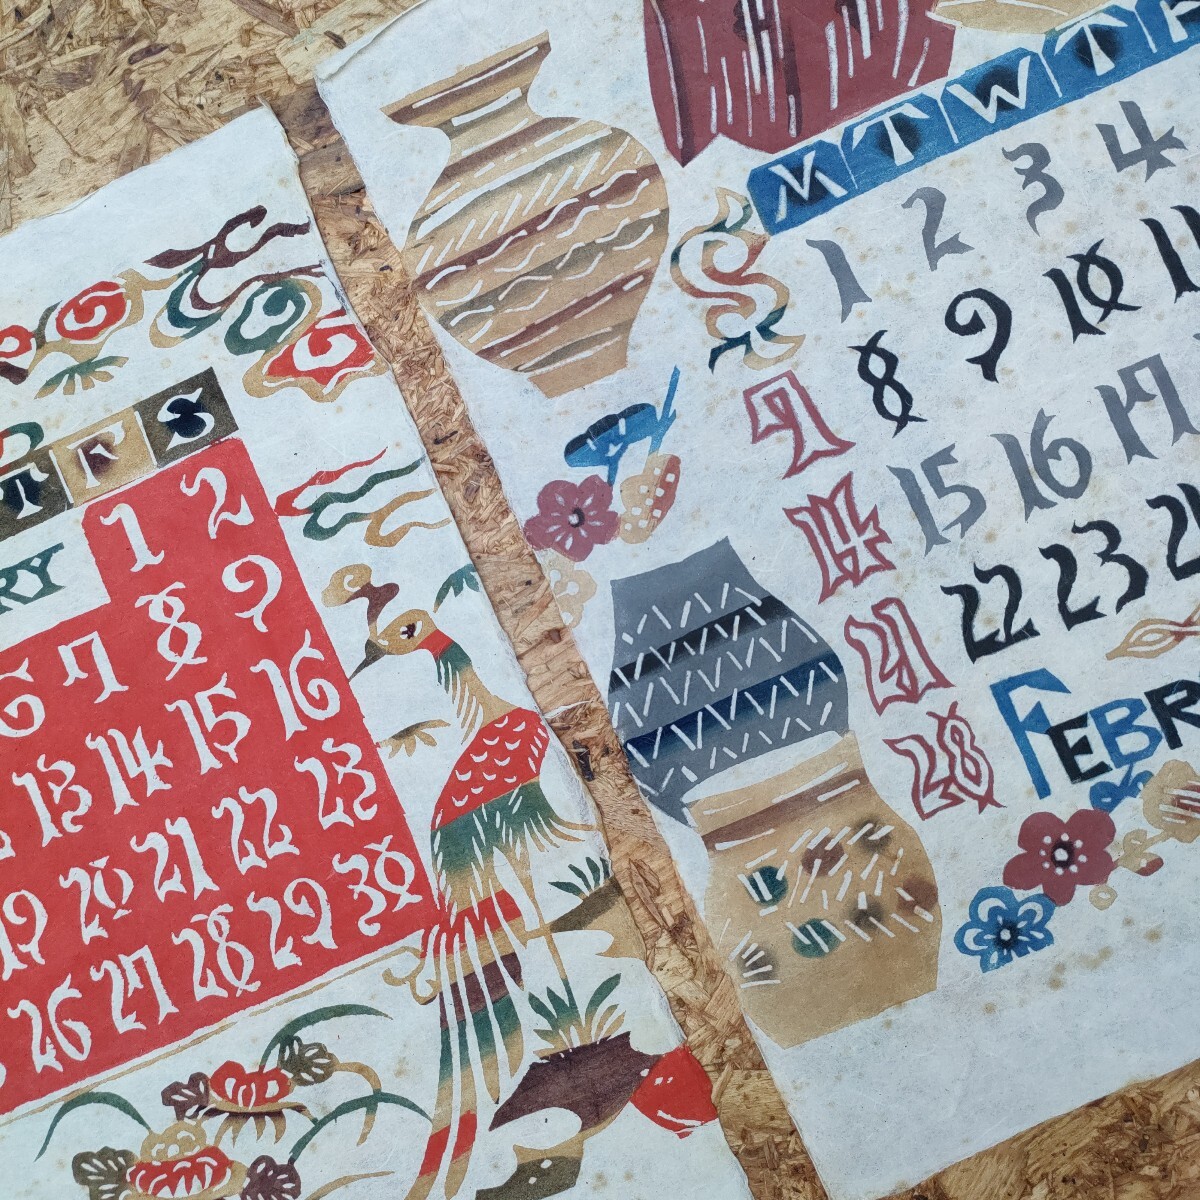 T F S
RY 1 2
6 7 8 9
13 14 15 16
19 20 21 22 23
26 27 28 29 30
M T W T F
1 2 3 4
7 8 9 10 11
14 15 16 17
21 22 23
28 FEBR